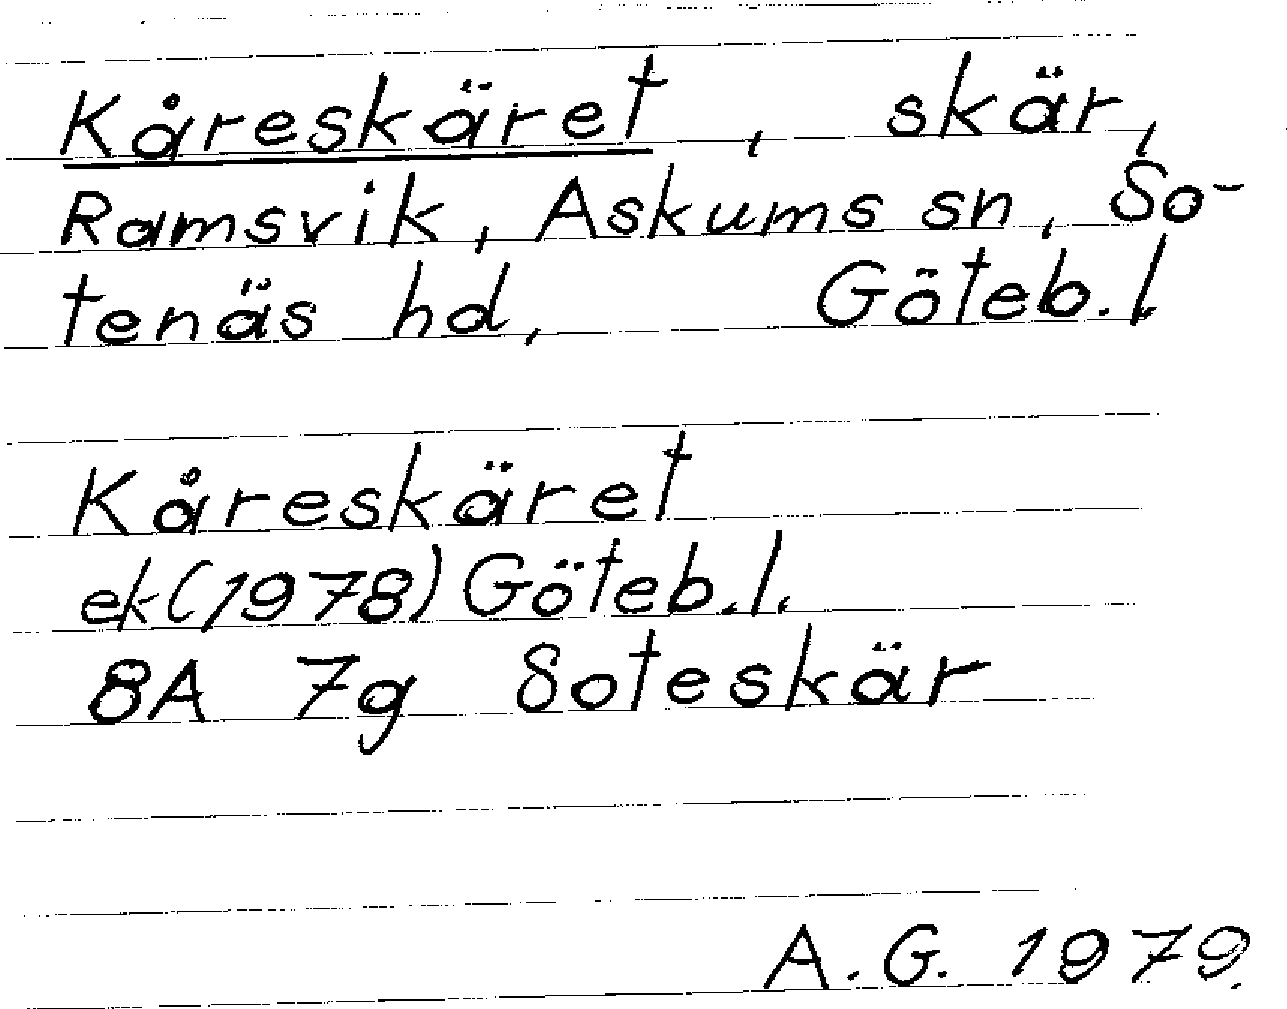 Kåreskäret, skär,
Ramsvik, Askums sn, So-
tenäs hd, Göteb.l.
Kåreskäret
ek(1978) Göteb.l.
8A 7g Soteskär
A.G. 1979.